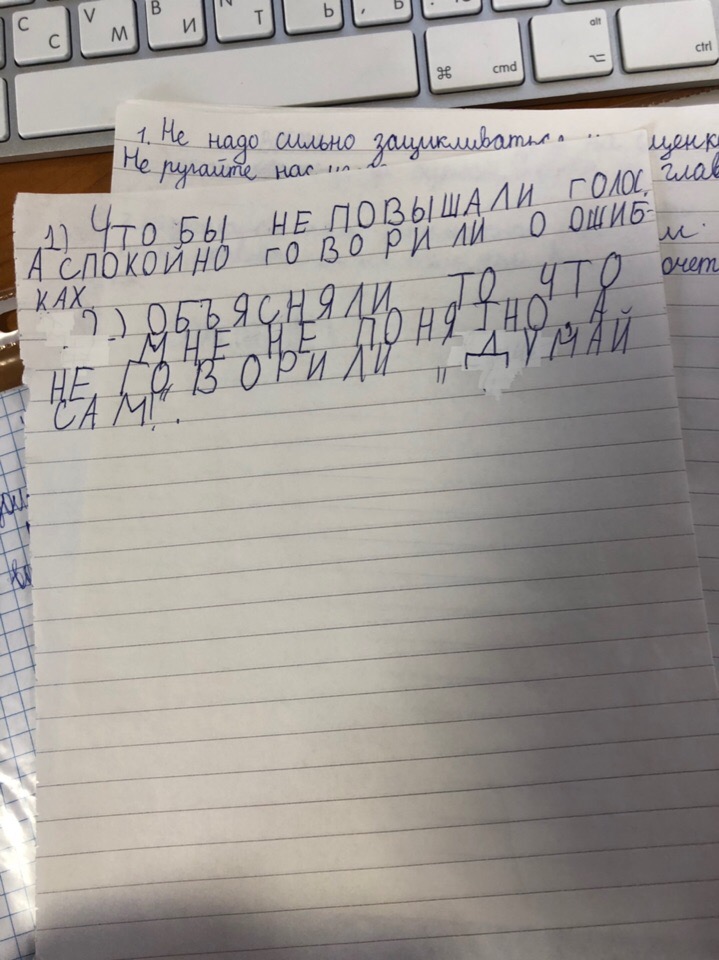 C С
V М
B И
N Т
Ь
, Б
alt
⌘ cmd
⌥
ctrl
1. Не надо сильно зацикливаться
Не ругайте нас
глав
м.
очет
1) ЧТО БЫ НЕ ПОВЫШАЛИ ГОЛОС,
А СПОКОЙНО ГОВОРИЛИ О ОШИБ-
КАХ.
2.) ОБЪЯСНЯЛИ ТО ЧТО
МНЕ НЕ ПОНЯТНО, А
НЕ ГОВОРИЛИ „ДУМАЙ
САМ!".